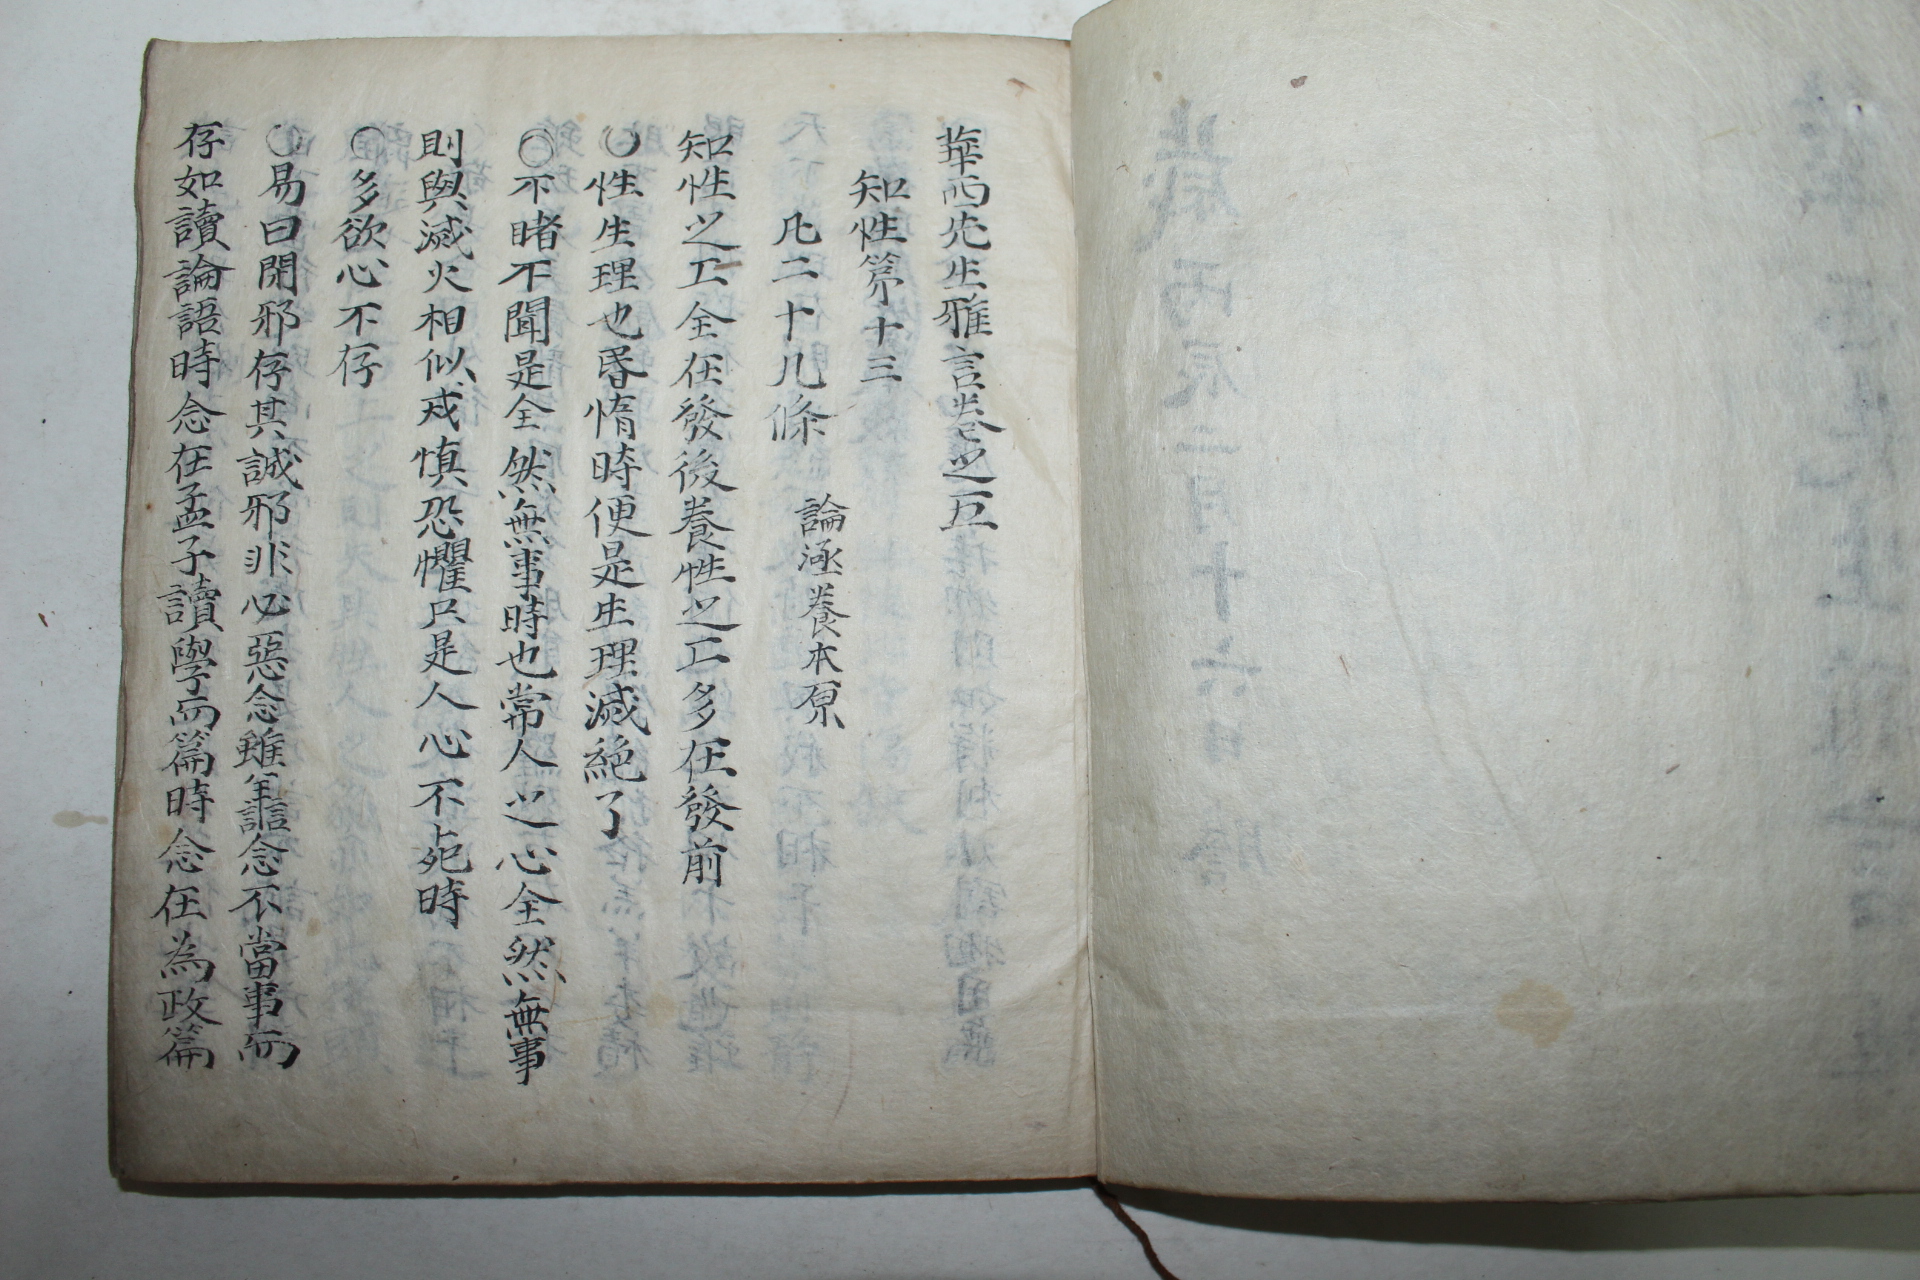 華西先生雅言卷之五
知性第十三
凡二十九條 論涵養本原
知性之工全在發後養性之工多在發前
○性生理也昏惰時便是生理滅絶了
○不睹不聞是全然無事時也常人之心全然無事
則與滅火相似戒慎恐懼只是人心不死時
○多欲心不存
○易曰閑邪存其誠邪非必惡念雖善念不當事而
存如讀論語時念在孟子讀學而篇時念在為政篇